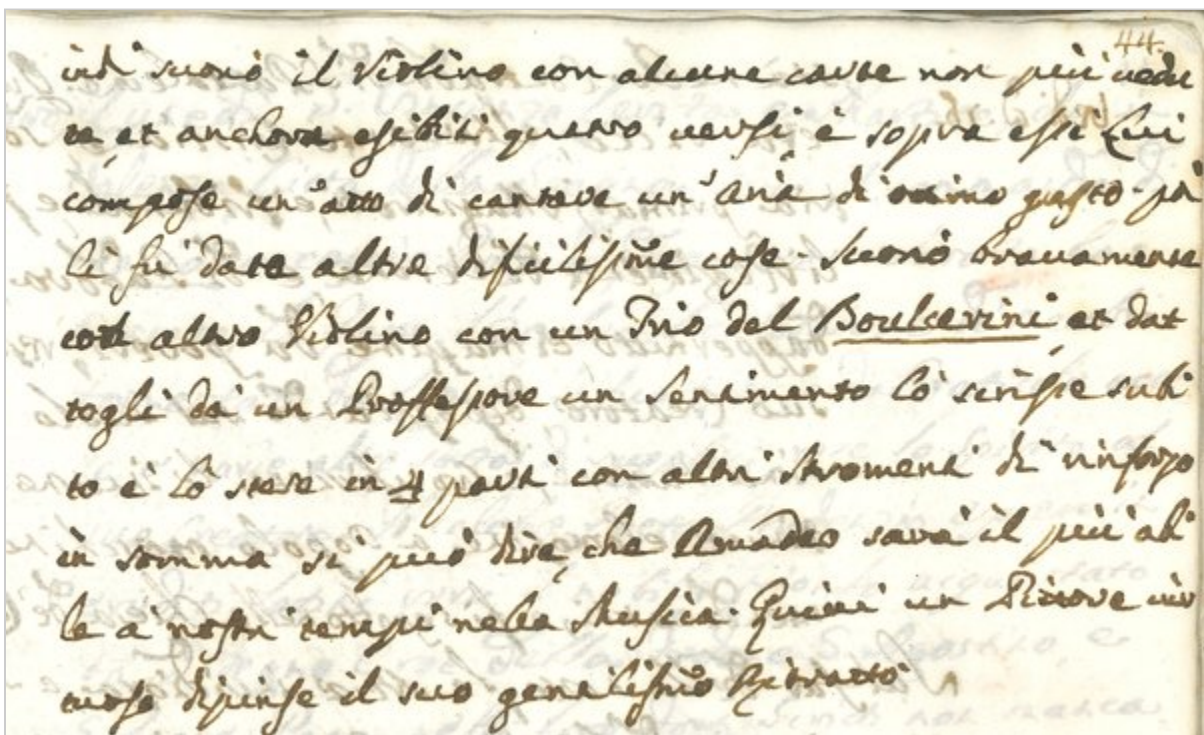 44.
indi suonò il Violino con alcune carte non più uedu
te et anchora esibiti quatro uersi è sopra essi Lui
compose un atto di cantare un'aria di otimo gusto - poi
li fù date altre dificilissime cose - Suonò brauamente
col altro Violino con un Trio del Boulcerini, et dat
togli da un Proffessore un Sentimento lò scrisse subi
to è lò stese in 4 parti con altri stromenti di rinforzo
in somma si può dire, che Amadeo sarà il più abi
le à nostri tempi nella Musica. Quiui un Pittore uir
tuoso dipinse il suo gentilissimo Ritratto